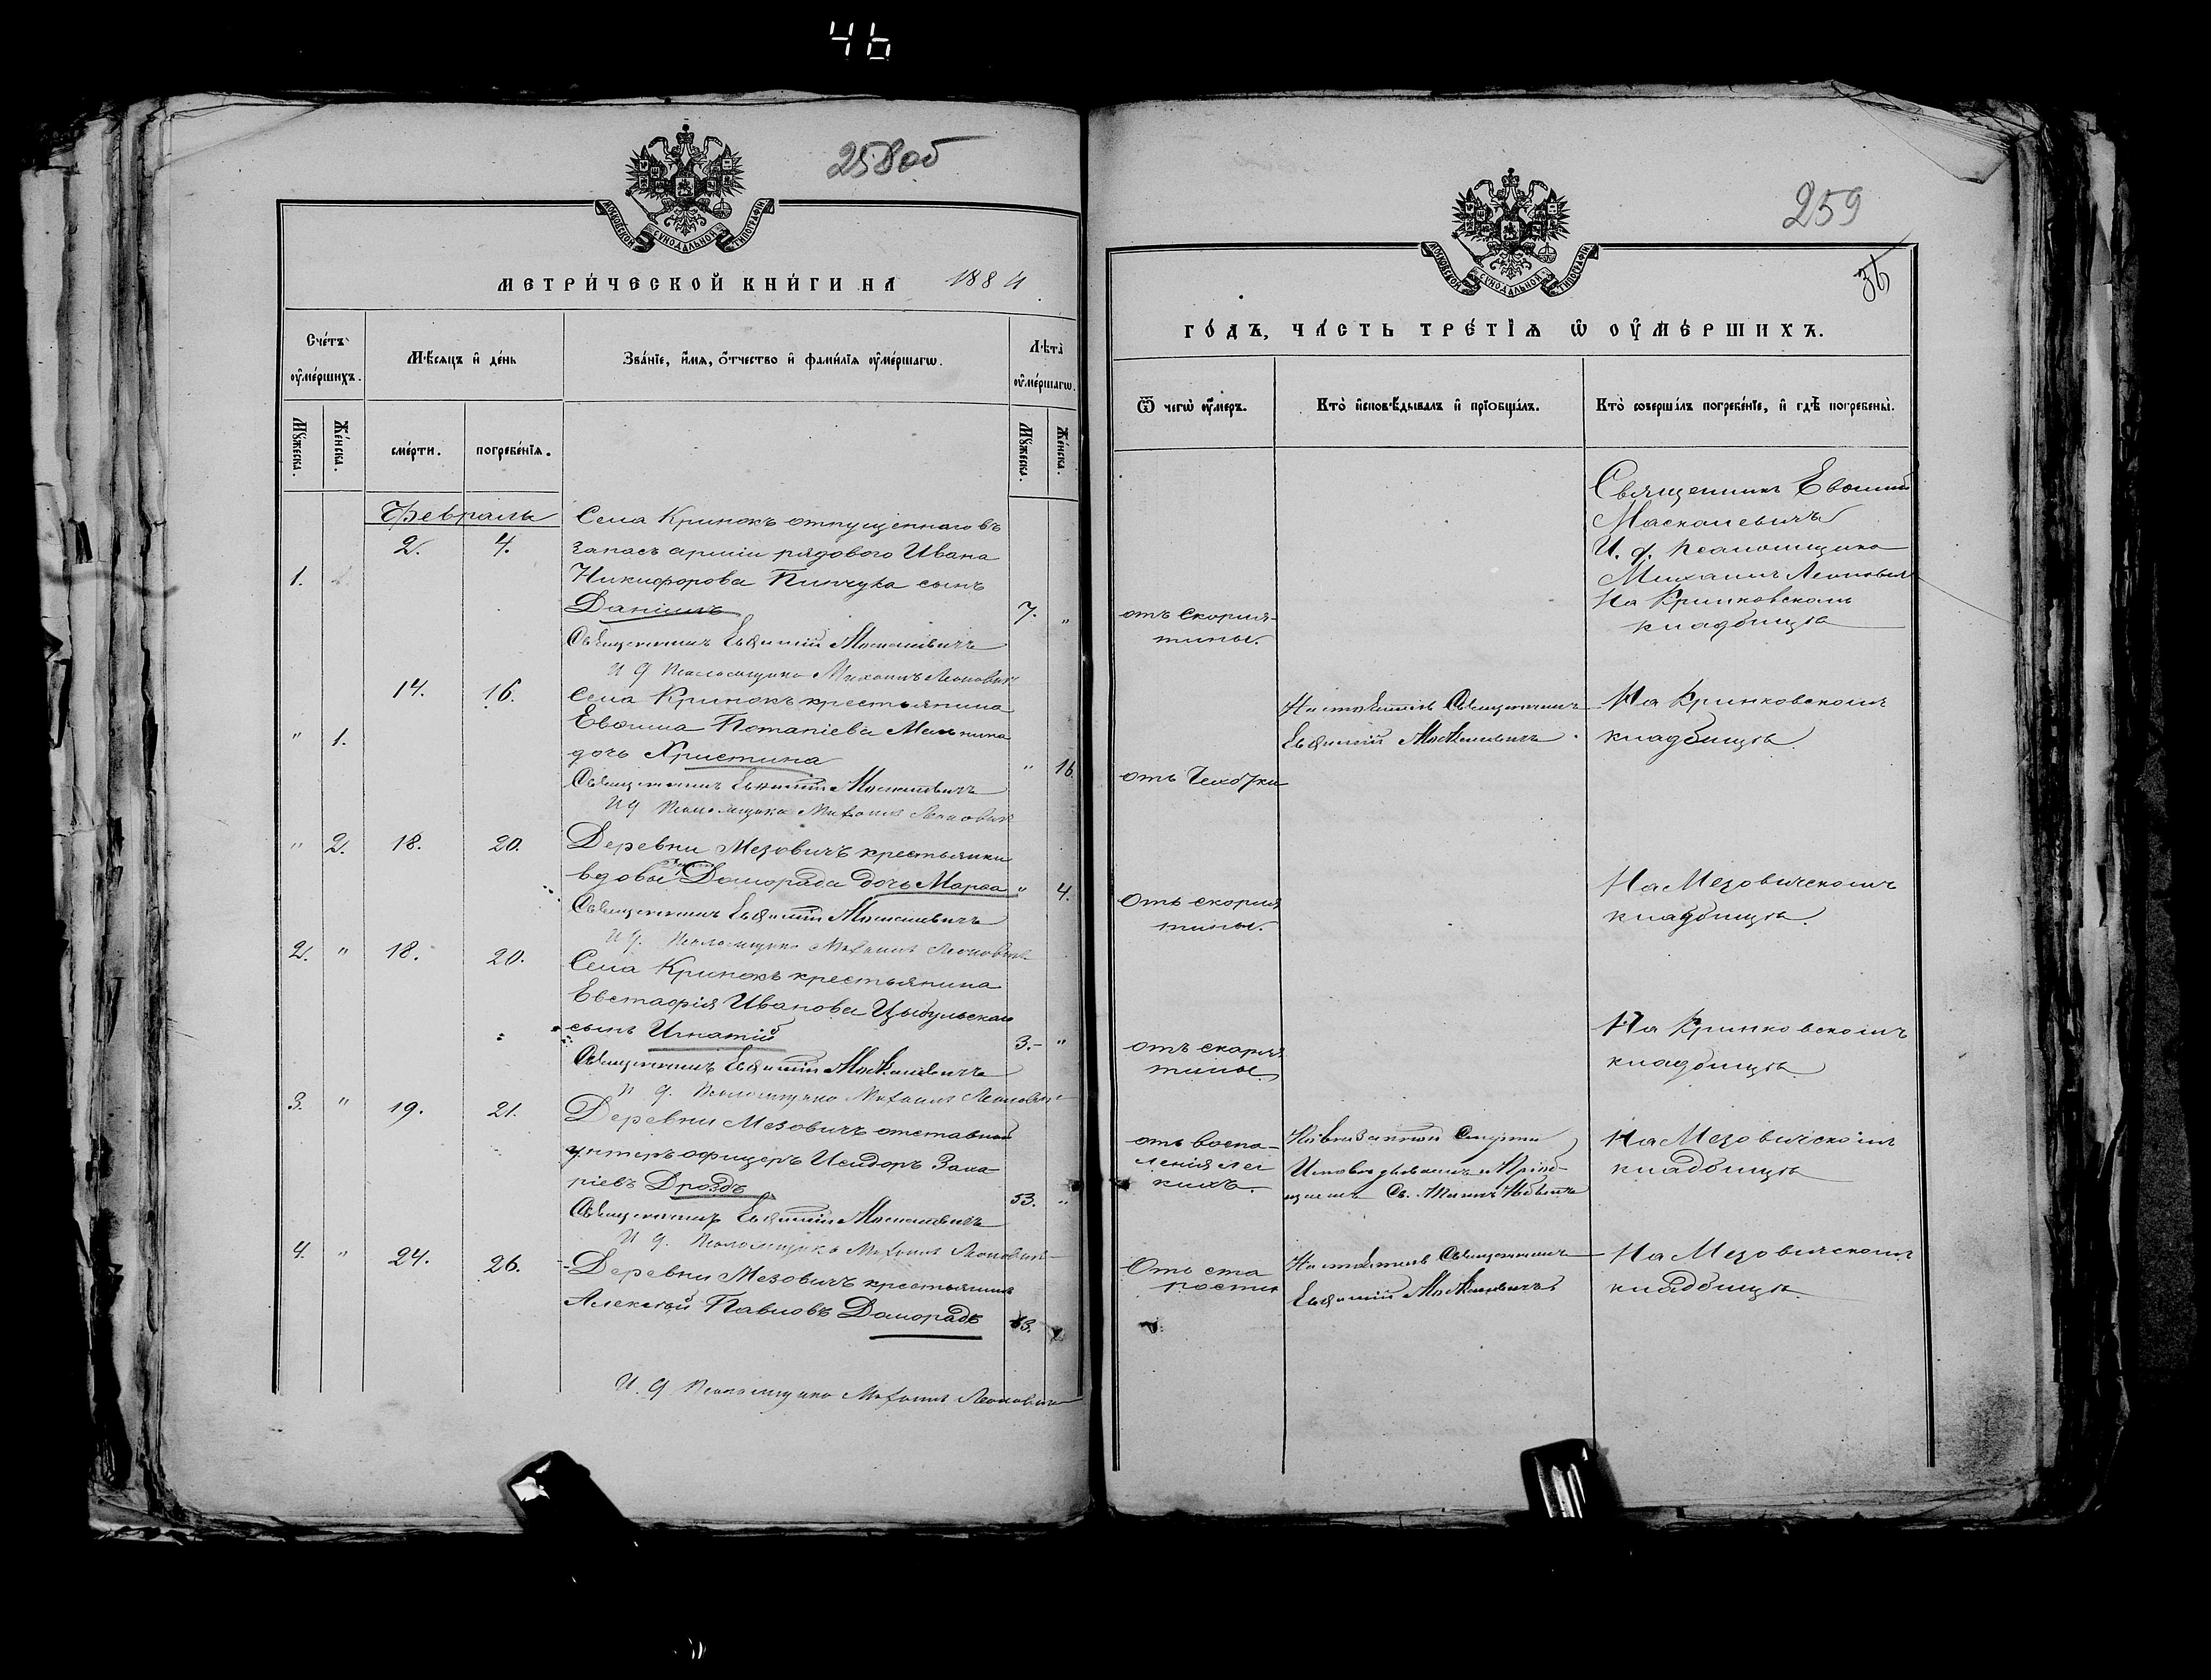 46
258об
МОСКОВСКОЙ СѴНОДАЛЬНОЙ ТИПОГРАФІИ
МЕТРИ́ЧЕСКОЙ КНИ́ГИ НА 1884
Сче́тъ ᲂу҆ме́ршихъ.
Мѣ́сяцъ и҆ де́нь
Зва́нїе, и҆́мя, ѻ҆́тчество и҆ фами́лїя ᲂу҆ме́ршагѡ.
Лѣта̀ ᲂу҆ме́ршагѡ.
Мꙋ́жеска.
Же́нска.
сме́рти.
погребе́нїя.
Мꙋ́жеска.
Же́нска.
Февраль
1.
2.
4.
Села Кринокъ отпущеннаго въ
запасъ арміи рядового Ивана
Никифорова Пинчука сынъ
Даніилъ
7. "
Священникъ Евѳимій Маскалевичъ
И д Псаломщика Михаилъ Леонович
" 1.
14.
16.
Села Кринокъ крестьянина
Евѳима Потапіева
дочь Христина
" 16.
Священникъ Евѳимій Маскалевичъ
И д Псаломщика Михаилъ Леонович
" 2.
18.
20.
Деревни Мезовичъ крестьянки
вдовы Доморада дочь Марѳа
" 4.
Священникъ Евѳимій Маскалевичъ
И д. Псаломщика Михаилъ Леонович
2. "
18.
20.
Села Кринокъ крестьянина
Евстафія Иванова Цыбульскаго
сынъ Игнатій
3. "
Священникъ Евѳимій Маскалевичъ
И д. Псаломщика Михаилъ Леонович
3. "
19.
21.
Деревни Мезовичъ отставной
унтеръ офицеръ Исидоръ Заха-
ріевъ Дроздъ
53. "
Священникъ Евѳимій Маскалевичъ
И д. Псаломщика Михаилъ Леонович
4. "
24.
26.
Деревни Мезовичъ крестьянинъ
Алексѣй Павловъ Доморадъ
83.
И. д Псаломщика Михаилъ Леонович
259
36
МОСКОВСКОЙ СѴНОДАЛЬНОЙ ТИПОГРАФІИ
ГО́ДЪ, ЧА́СТЬ ТРЕ́ТЇЯ Ѡ ОУ҆МЕ́РШИХЪ.
Ѿ чегѡ̀ ᲂу҆́меръ.
Кто̀ и҆сповѣ́дывалъ и҆ прїобща́лъ.
Кто̀ соверша́лъ погребе́нїе, и҆ гдѣ̀ погребены̀.
Священникъ Евѳимій
Маскалевичъ
И. д. псаломщика
Михаилъ Леонович
На Кринковскомъ
кладбищѣ
отъ скорля-
тины.
Настоятель Священникъ
Евѳимій Маскалевичъ
На Кринковскомъ
кладбищѣ.
отъ Чахотки
На Мезовичскомъ
кладбищѣ.
Отъ скорля
тины.
На Кринковскомъ
кладбищѣ.
отъ скорля
тины.
отъ воспа-
ленія лег
кихъ.
Исповѣдывалъ и Пріоб-
щалъ Св. Таинъ
На Мезовичскомъ
кладбищѣ
Отъ ста
рости
Настоятель Священникъ
Евѳимій Маскалевичъ
На Мезовичскомъ
кладбищѣ.